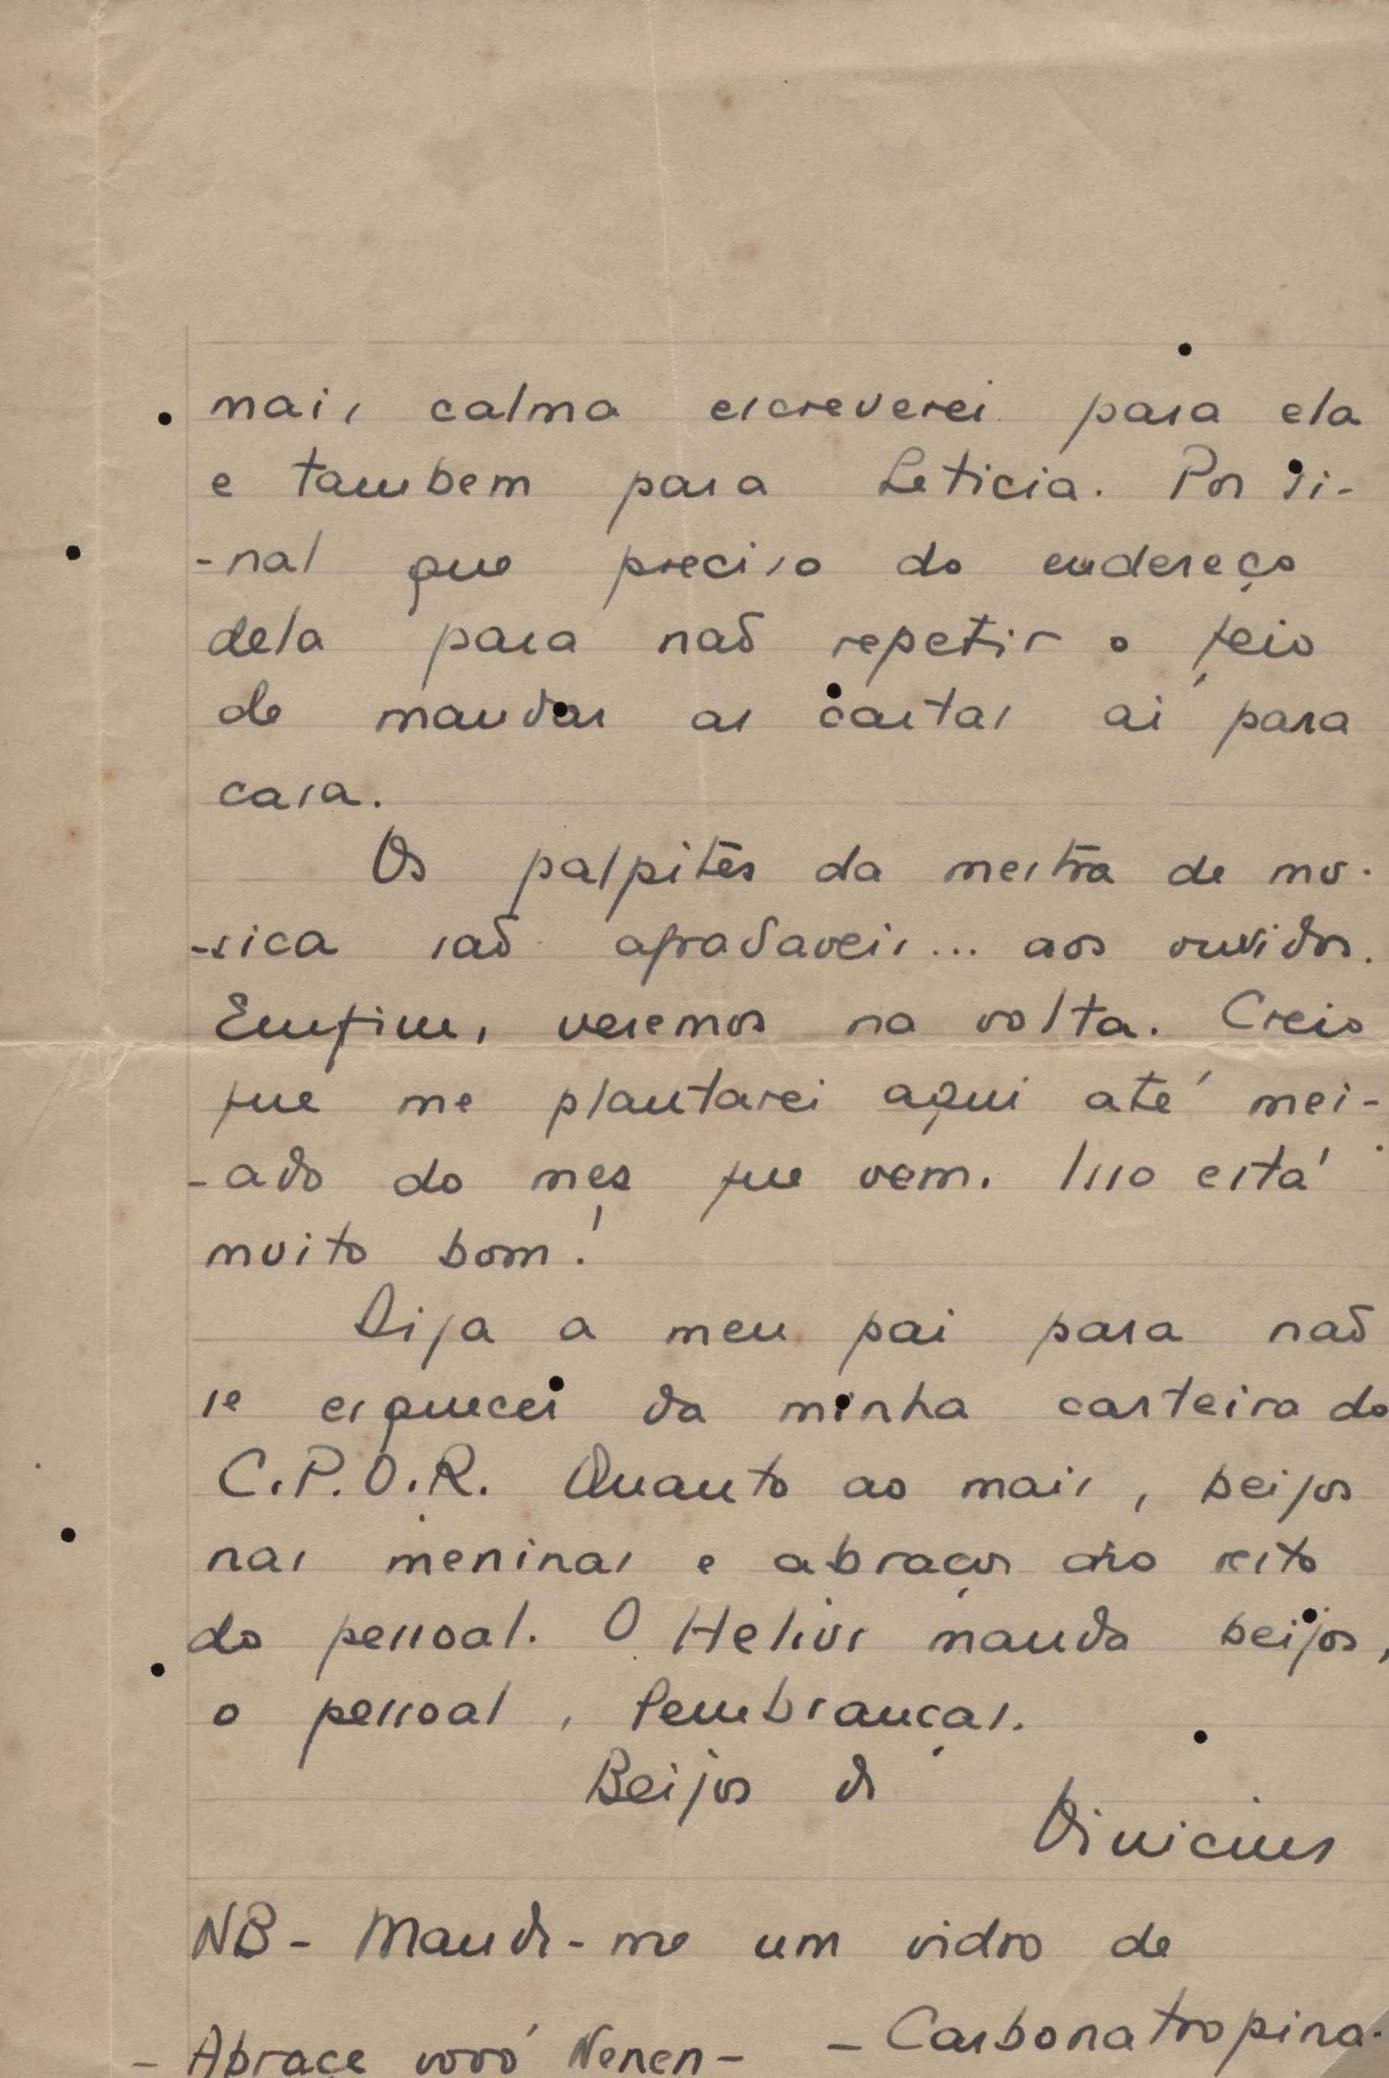 mais calma escreverei para ela
e tambem para Leticia. Por si-
-nal que preciso do endereço
dela para naõ repetir o feio
de mandar as cartas aí para
casa.
Os palpites da mestra de mu-
-sica saõ agradaveis... aos ouvidos.
Emfim, veremos na volta. Creio
que me plantarei aqui até mei-
-ado do mes que vem. Isso está
muito bom!
Diga a meu pai para naõ
se esquecer da minha carteira do
C.P.O.R. Quanto ao mais, beijos
nas meninas e abraços no resto
do pessoal. O Helius manda beijos,
o pessoal, lembranças.
Beijos de
Vinicius
NB - Mande-me um vidro de
- Carbonatropina.
- Abrace vovó Nenen -